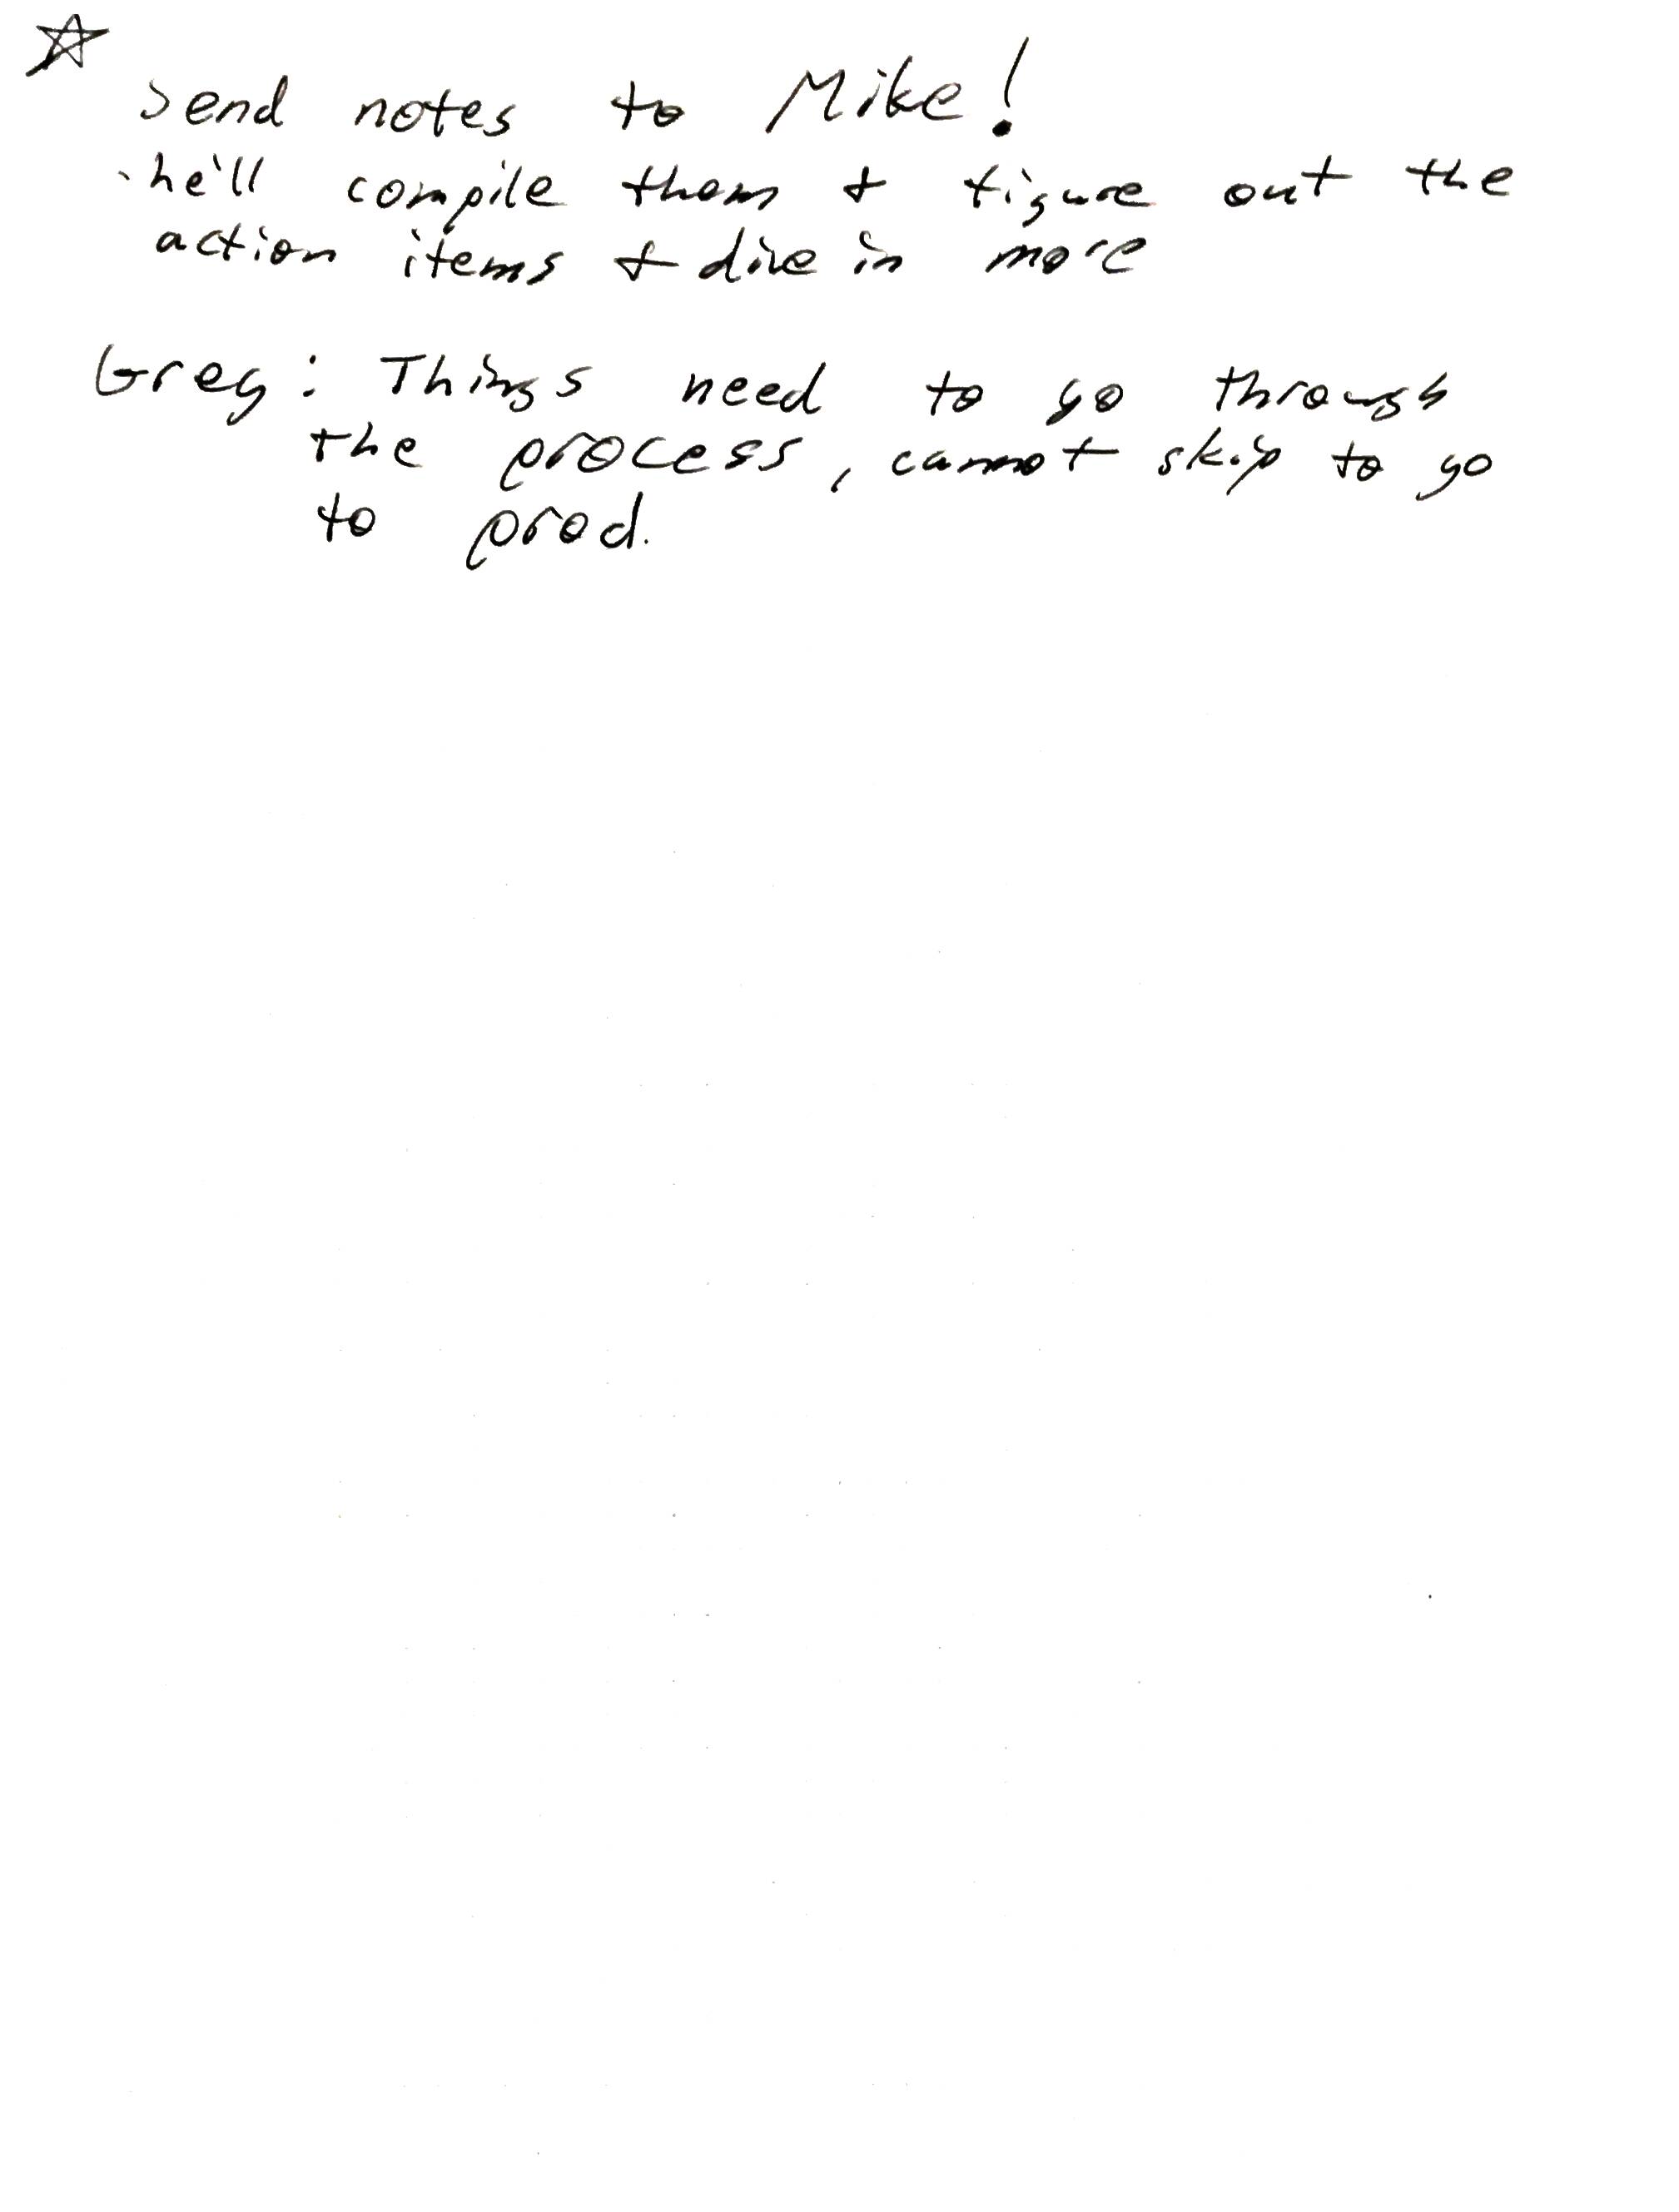 ☆
send notes to Mike!
· he'll compile them + figure out the
action items + dive in more
Greg: Things need to go through
the process, cannot skip to go
to prod.